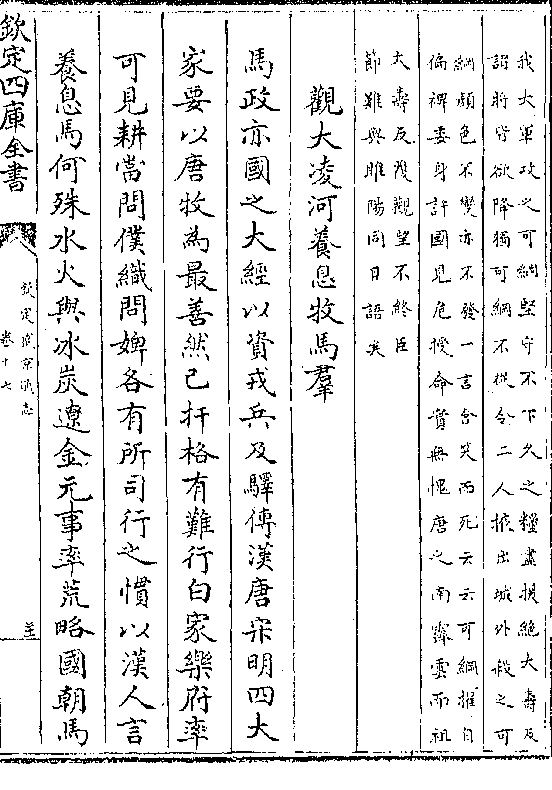 我大軍攻之可綱堅守不下久之糧盡援絶大壽及
諸將皆欲降獨可綱不從令二人掖出城外殺之可
綱顔色不變亦不發一言含笑而死云云可綱擢自
偏裨委身許國見危授命實無愧唐之南霽雲而祖
大壽反覆觀望不終臣
節難與睢陽同日語矣
觀大凌河養息牧馬羣
馬政亦國之大經以資戎兵及驛傳漢唐宋明四大
家要以唐牧為最善然已扞格有難行白家樂府率
可見耕當問僕織問婢各有所司行之慣以漢人言
養息馬何殊水火與冰炭遼金元事率荒略國朝馬
欽定四庫全書
欽定盛京通志
卷十七